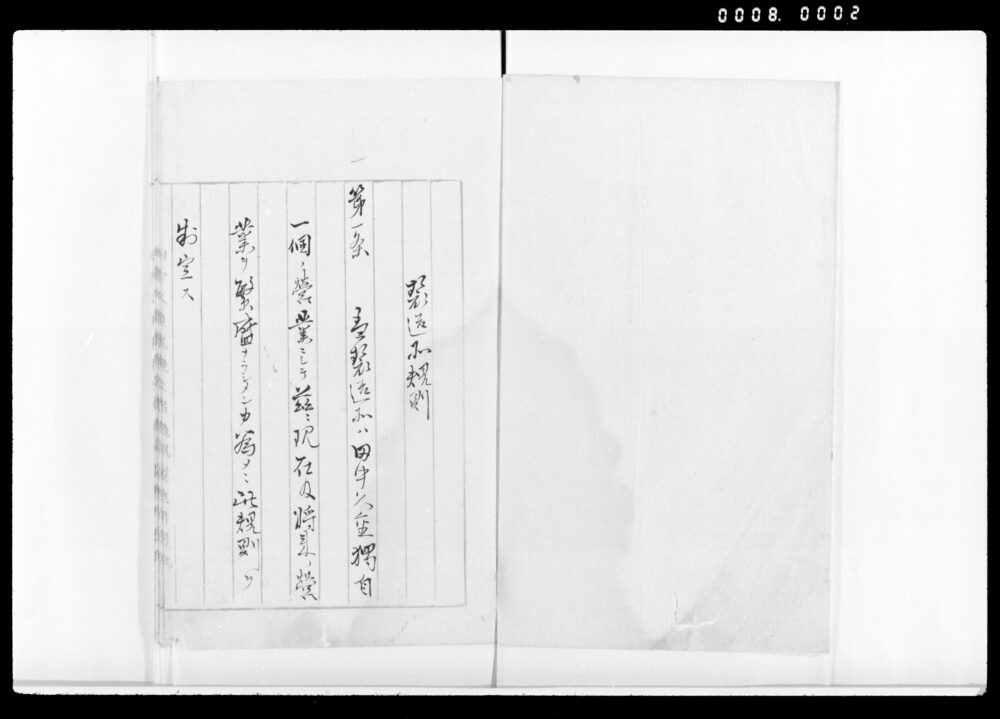 0008. 0002
製造所規則
第一条　吾製造所ハ田中久重獨自
一個ノ營業ニシテ茲ニ現在及將来ノ營
業ヲ繁盛ナラシメンカ為メニ此規則ヲ
制定ス